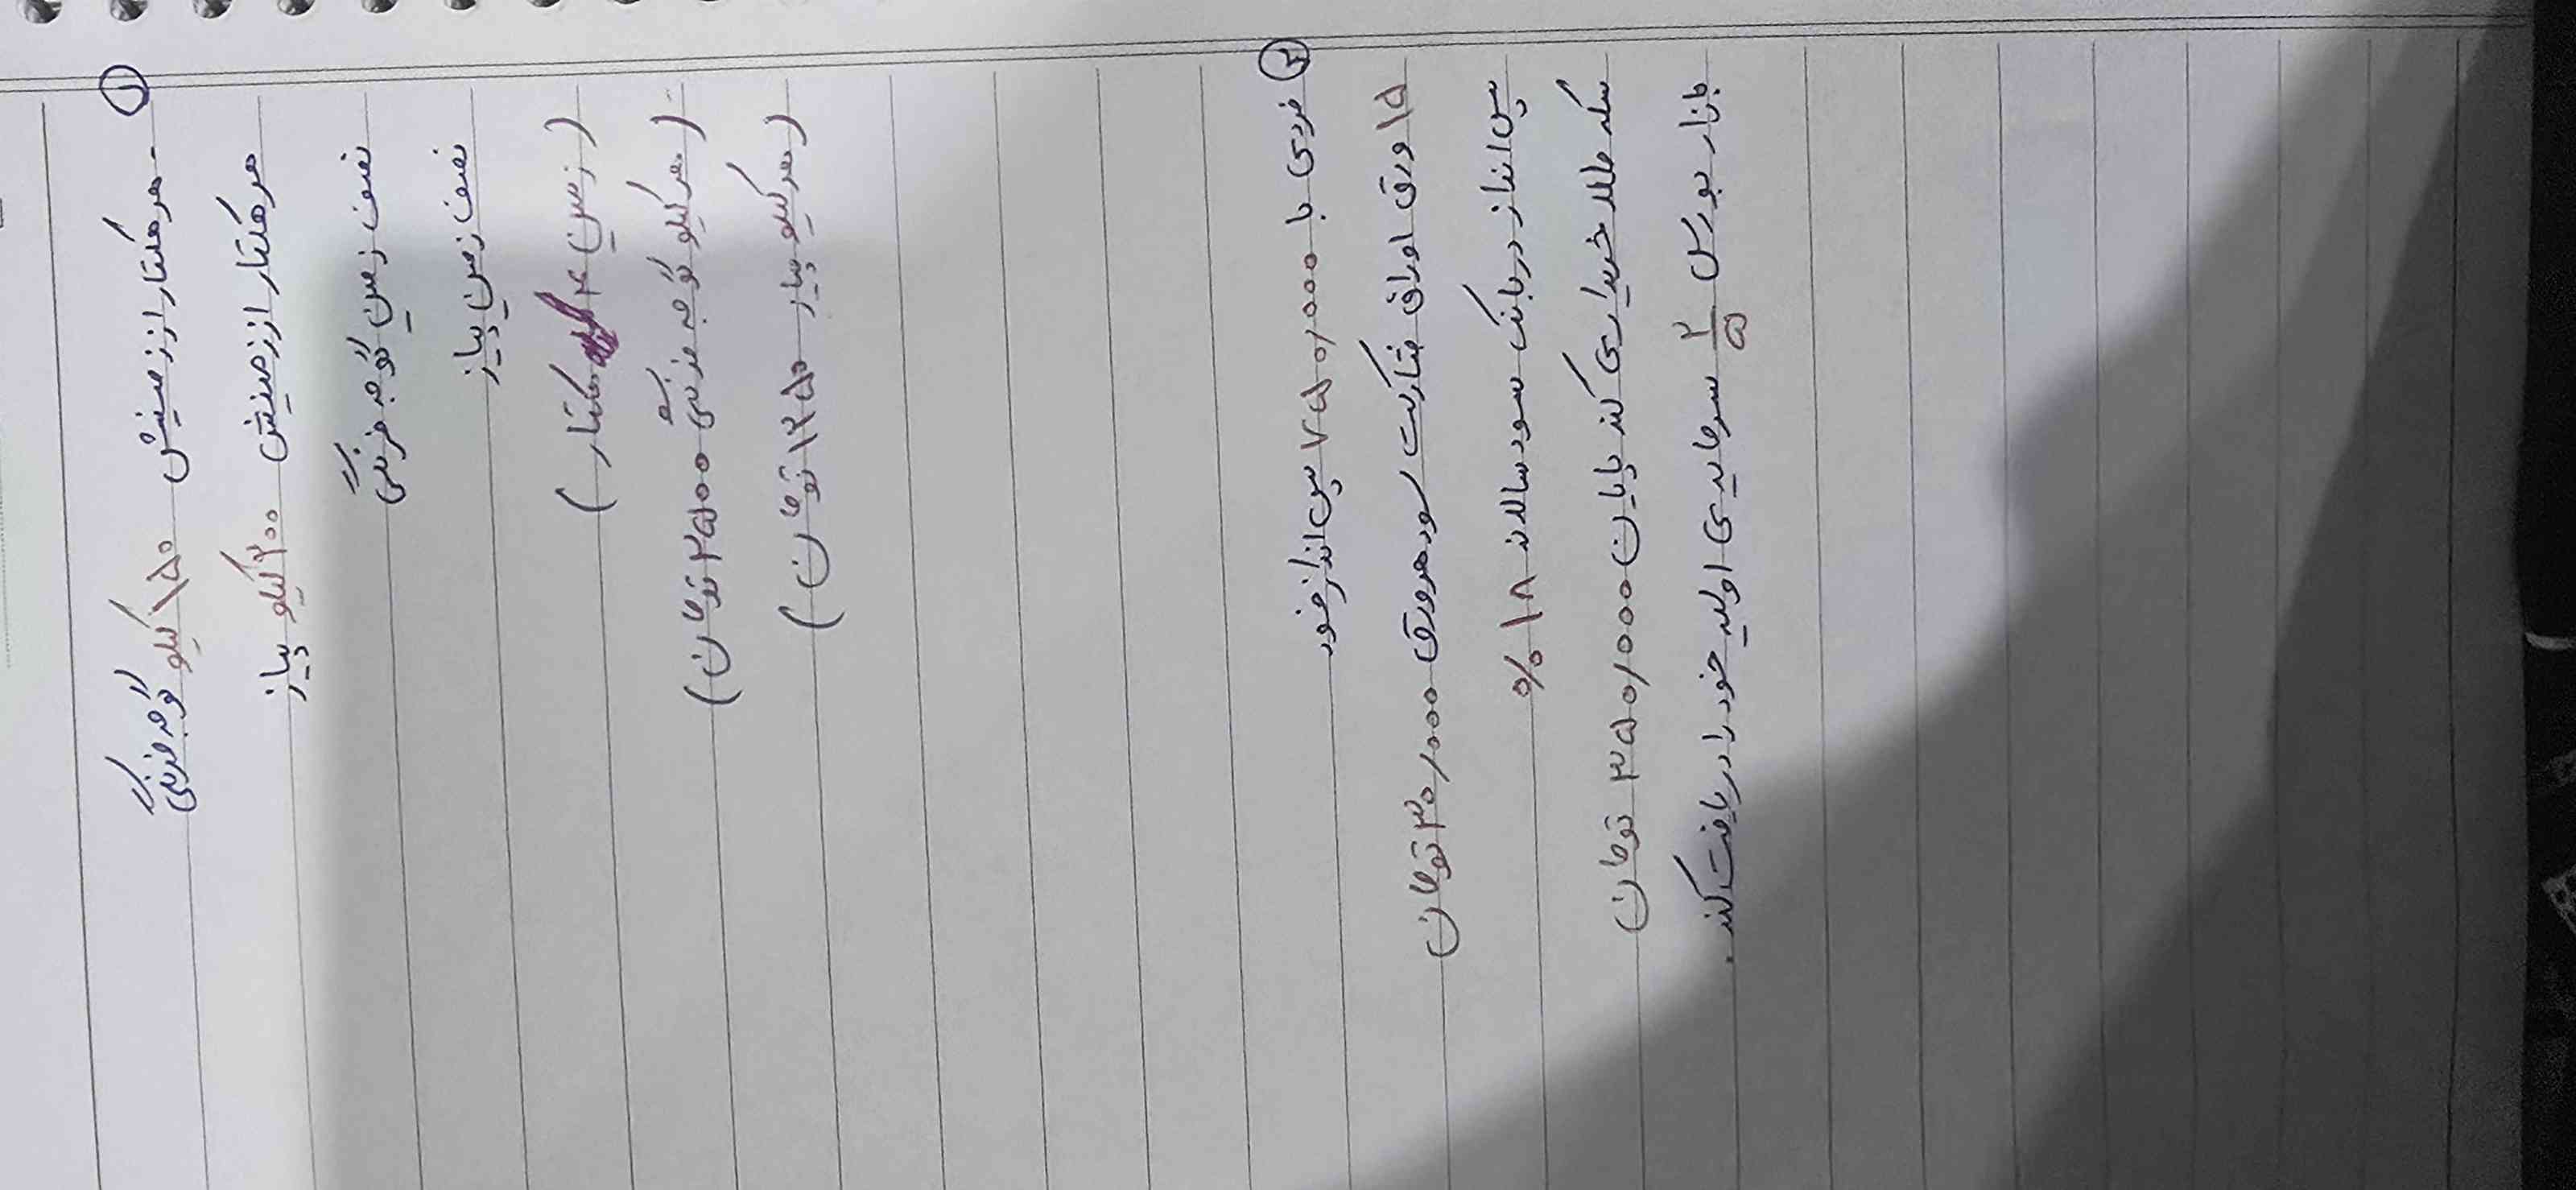 ۱
- هر هکتار از زمینش ۱۵۰ کیلو گوجه فرنگی
هر هکتار از زمینش ۲۰۰ کیلو پیاز
نصف زمین گوجه فرنگی
نصف زمین پیاز
(زمین ۴ هکتار)
(هر کیلو گوجه فرنگی ۲۵۰۰ تومان)
(هر کیلو پیاز ۱۲۵۰ تومان)
فردی با ۷۵۰/۰۰۰ پس انداز خود
۱۵ ورق اوراق مشارکت سود هرورق ۳۰/۰۰۰ تومان
پس انداز در بانک سود سالانه ۱۸ %
سکه طلا خریداری کند پایان ۳۵۰/۰۰۰ تومان
بازار بورس ۲/۵ سرمایه ی اولیه خود را دریافت کند.